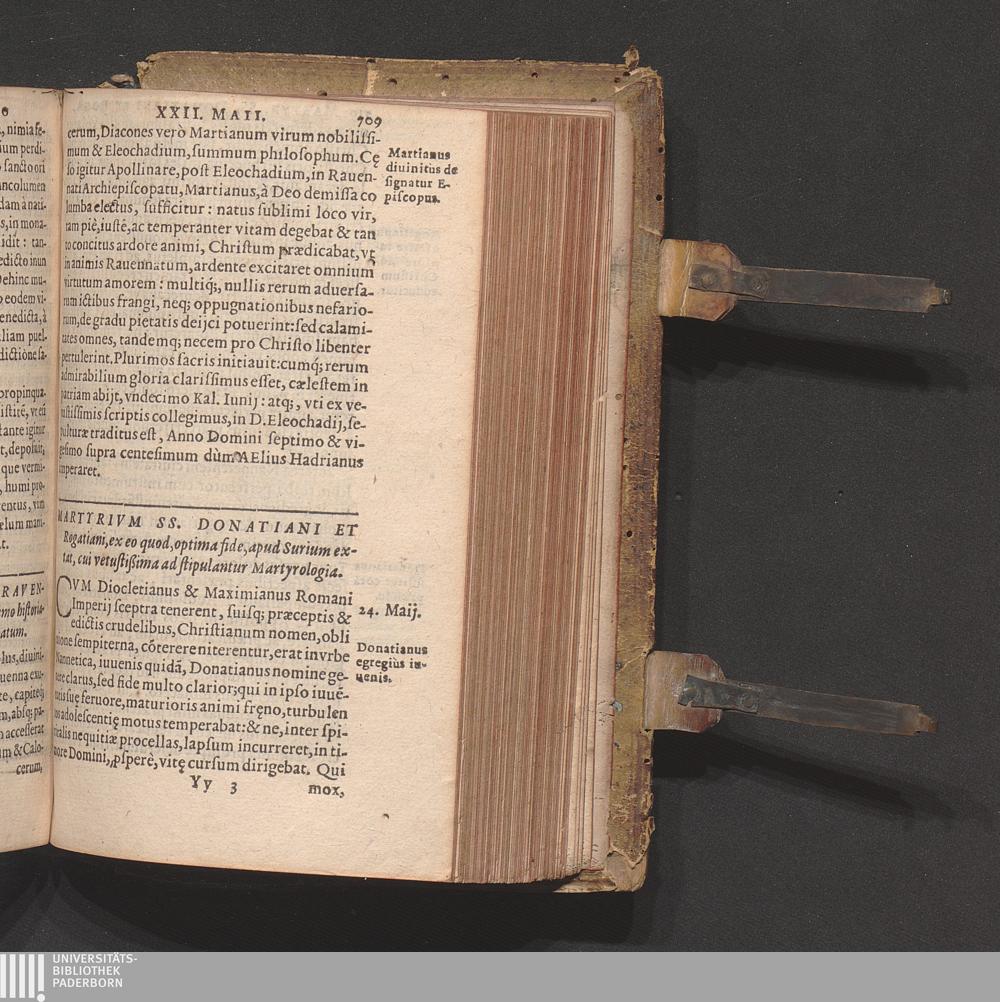 , nimia fe-
ium perdi-
sancto ori
ancolumen
dam à nati-
s, in mona-
idit : tan-
edicto inun
Dehinc mu-
o eodem vi-
enedicta, à
liam puel-
dictione sa-
propinqua.
tante igitur
t, deposuit,
que vermi-
, humi pro-
entus, vim
ælum mani-
t.
RAVEN-
emo historia-
atum.
-lus, diuini-
uenna exu-
te, capiteq́;
m, absq; pa-
o accesserat
um & Calo-
cerum,
XXII. MAII. 709
cerum, Diacones verò Martianum virum nobilissi-
mum & Eleochadium, summum philosophum. Cę
so igitur Apollinare, post Eleochadium, in Rauen-
nati Archiepiscopatu, Martianus, à Deo demissa co
lumba electus, sufficitur : natus sublimi loco vir,
tam piè, iustè, ac temperanter vitam degebat & tan
to concitus ardore animi, Christum prædicabat, vt
in animis Rauennatum, ardente excitaret omnium
virtutum amorem : multiq́;, nullis rerum aduersa-
rum ictibus frangi, neq; oppugnationibus nefario-
rum, de gradu pietatis deijci potuerint: sed calami-
tates omnes, tandemq; necem pro Christo libenter
pertulerint. Plurimos sacris initiauit: cumq́; rerum
admirabilium gloria clarissimus esset, cælestem in
patriam abijt, vndecimo Kal. Iunij : atq;, vti ex ve-
tustissimis scriptis collegimus, in D. Eleochadij, se-
pulturæ traditus est, Anno Domini septimo & vi-
gesimo supra centesimum dùm AElius Hadrianus
imperaret.
Martianus
diuinitus de
signatur E-
piscopus.
MARTYRIVM SS. DONATIANI ET
Rogatiani, ex eo quod, optima fide, apud Surium ex-
tat, cui vetustißima adstipulantur Martyrologia.
CVM Diocletianus & Maximianus Romani
Imperij sceptra tenerent, suisq; præceptis &
edictis crudelibus, Christianum nomen, obli
uione sempiterna, cõterere niterentur, erat in vrbe
Nannetica, iuuenis quidã, Donatianus nomine ge-
nere clarus, sed fide multo clarior; qui in ipso iuuẽ-
tutis suę feruore, maturioris animi fręno, turbulen
tos adolescentię motus temperabat: & ne, inter spi-
ritalis nequitiæ procellas, lapsum incurreret, in ti-
more Domini, ꝓsperè, vitę cursum dirigebat. Qui
24. Maij.
Donatianus
egregius iu-
uenis.
Yy 3 mox,
UNIVERSITÄTS-
BIBLIOTHEK
PADERBORN